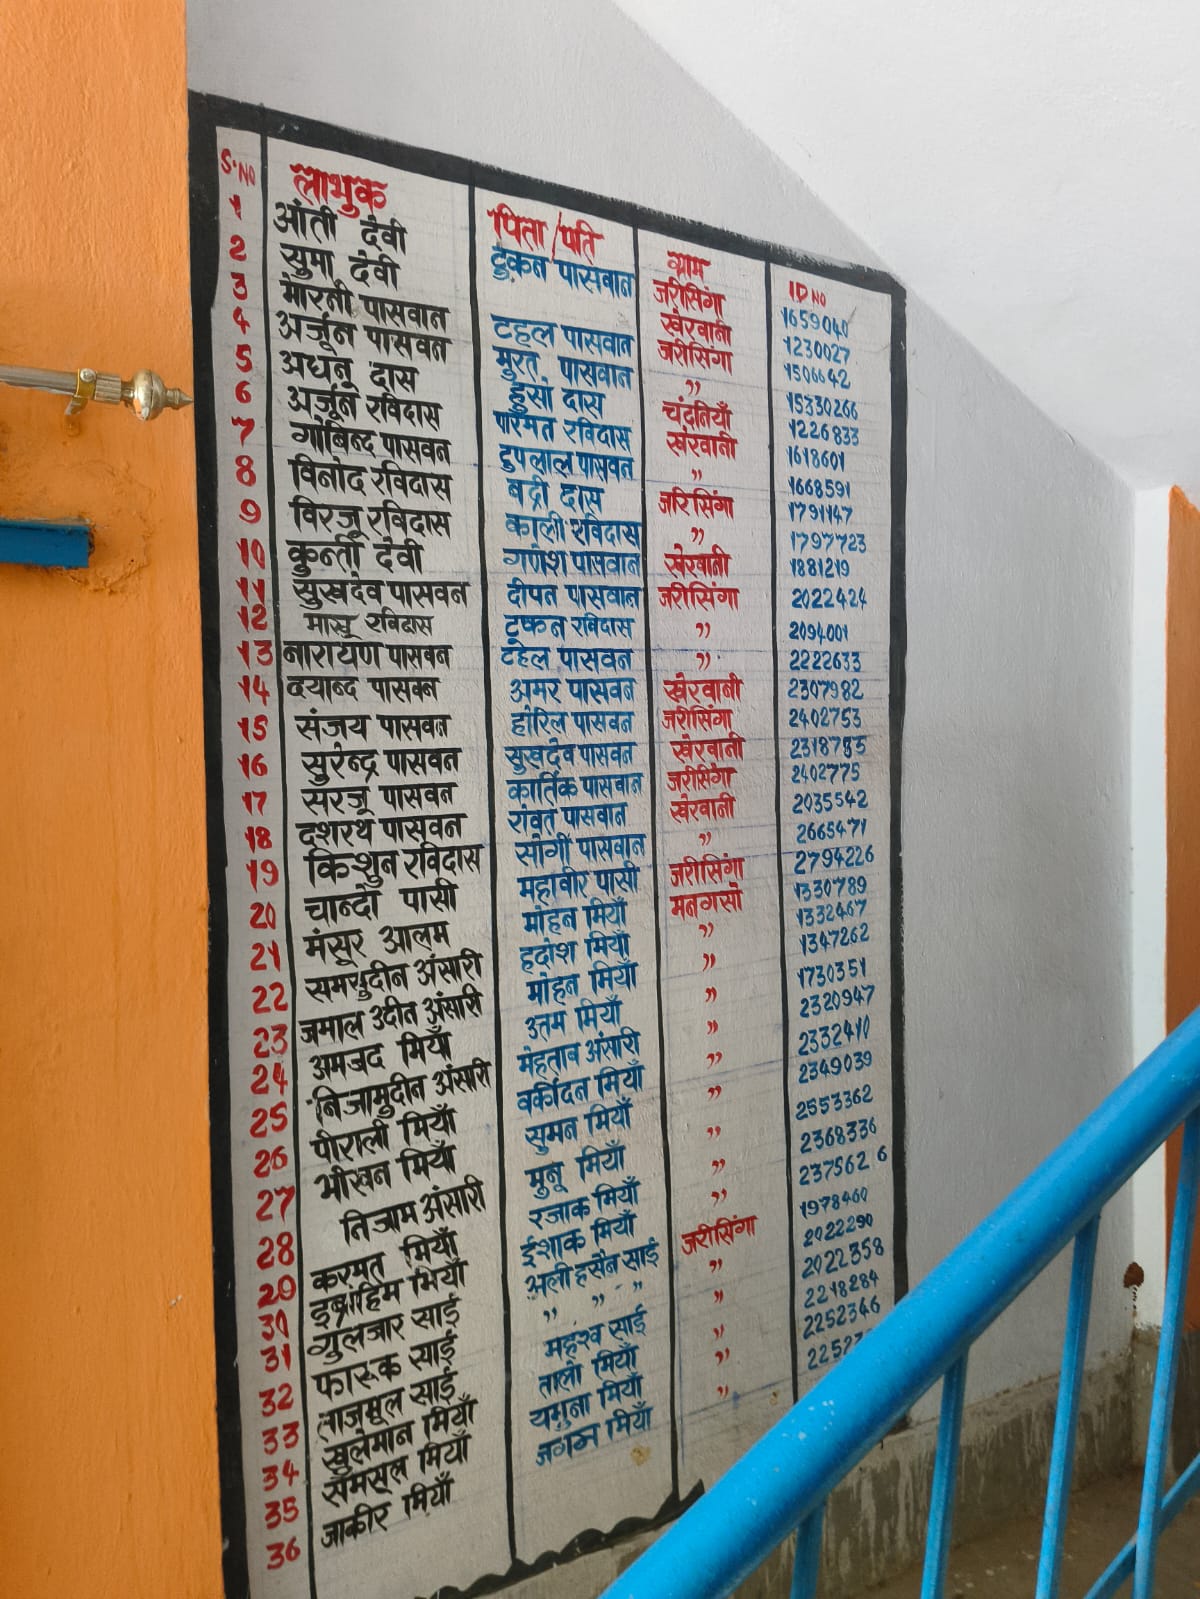 S.NO लाभुक पिता/पति ग्राम ID NO
1 आंती देवी टुकन पासवान जरीसिंगा 1659040
2 सुमा देवी खेरवानी 1230027
3 मारती पासवान टहल पासवान जरीसिंगा 1506642
4 अर्जून पासवन मुरत पासवान ,, 15330266
5 अघन दास हुसो दास चंदनियाँ 1226833
6 अर्जून रविदास परिमत रविदास खेरवानी 1618601
7 गोबिन्द पासवन टुपलाल पासवन ,, 1668591
8 विनोद रविदास बद्री दास जरिसिंगा 1791147
9 विरजू रविदास काली रविदास ,, 1797723
10 कुन्ती देवी गणेश पासवान खेरवानी 1881219
11 सुखदेव पासवन दीपन पासवान जरीसिंगा 2022424
12 मासू रविदास टुकन रविदास ,, 2094001
13 नारायण पासवन टहल पासवन ,, 2222633
14 दयान्द पासवन अमर पासवन खेरवानी 2307982
15 संजय पासवन होरिल पासवन जरीसिंगा 2402753
16 सुरेन्द्र पासवन सुखदेव पासवन खेरवानी 2318785
17 सरजू पासवन कार्तिक पासवान जरीसिंगा 2402775
18 दशरथ पासवन रोवत पासवान खेरवानी 2035542
19 किशुन रविदास सोगी पासवान ,, 2665471
20 चान्दो पासी महावीर पासी जरीसिंगा 2794226
21 मंसूर आलम मोहन मियाँ मनगसो 1330789
22 समसुदीन अंसारी हदीश मियाँ ,, 1332467
23 जमाल उदीन अंसारी मोहन मियाँ ,, 1347262
24 अमजद मियाँ उतम मियाँ ,, 1730351
25 निजामुदीन अंसारी मेहताब अंसारी ,, 2320947
26 पीराली मियाँ वकीदन मियाँ ,, 2332410
27 भीखन मियाँ सुमन मियाँ ,, 2349039
28 निजाम अंसारी मुनू मियाँ ,, 2553362
29 करमत मियाँ रजाक मियाँ ,, 2368336
30 इब्राहिम मियाँ ईशाक मियाँ ,, 2375626
31 गुलजार साई अली हसैन साई जरीसिंगा 1978460
32 फारूक साई ,, ,, ,, ,, 2022290
33 ताजमूल साई साई ,, 2022358
34 सुलेमान मियाँ ताली मियाँ ,, 2218284
35 समसूल मियाँ यमुना मियाँ ,, 2252346
36 जाकीर मियाँ मियाँ ,,